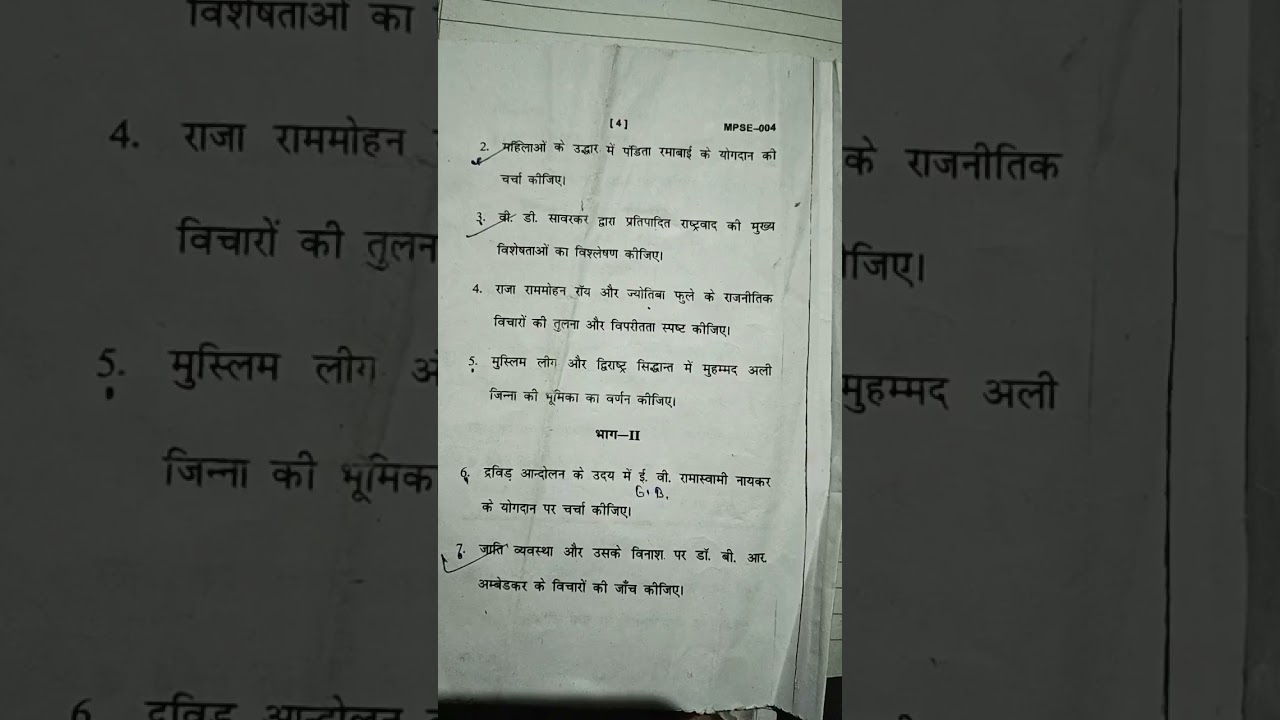 [4]
MPSE–004
2. महिलाओं के उद्धार में पंडिता रमाबाई के योगदान की
चर्चा कीजिए।
3. वी. डी. सावरकर द्वारा प्रतिपादित राष्ट्रवाद की मुख्य
विशेषताओं का विश्लेषण कीजिए।
4. राजा राममोहन रॉय और ज्योतिबा फुले के राजनीतिक
विचारों की तुलना और विपरीतता स्पष्ट कीजिए।
5. मुस्लिम लीग और द्विराष्ट्र सिद्धान्त में मुहम्मद अली
जिन्ना की भूमिका का वर्णन कीजिए।
भाग–II
6. द्रविड़ आन्दोलन के उदय में ई. वी. रामास्वामी नायकर
G.B.
के योगदान पर चर्चा कीजिए।
7. जाति व्यवस्था और उसके विनाश पर डॉ. बी. आर.
अम्बेडकर के विचारों की जाँच कीजिए।